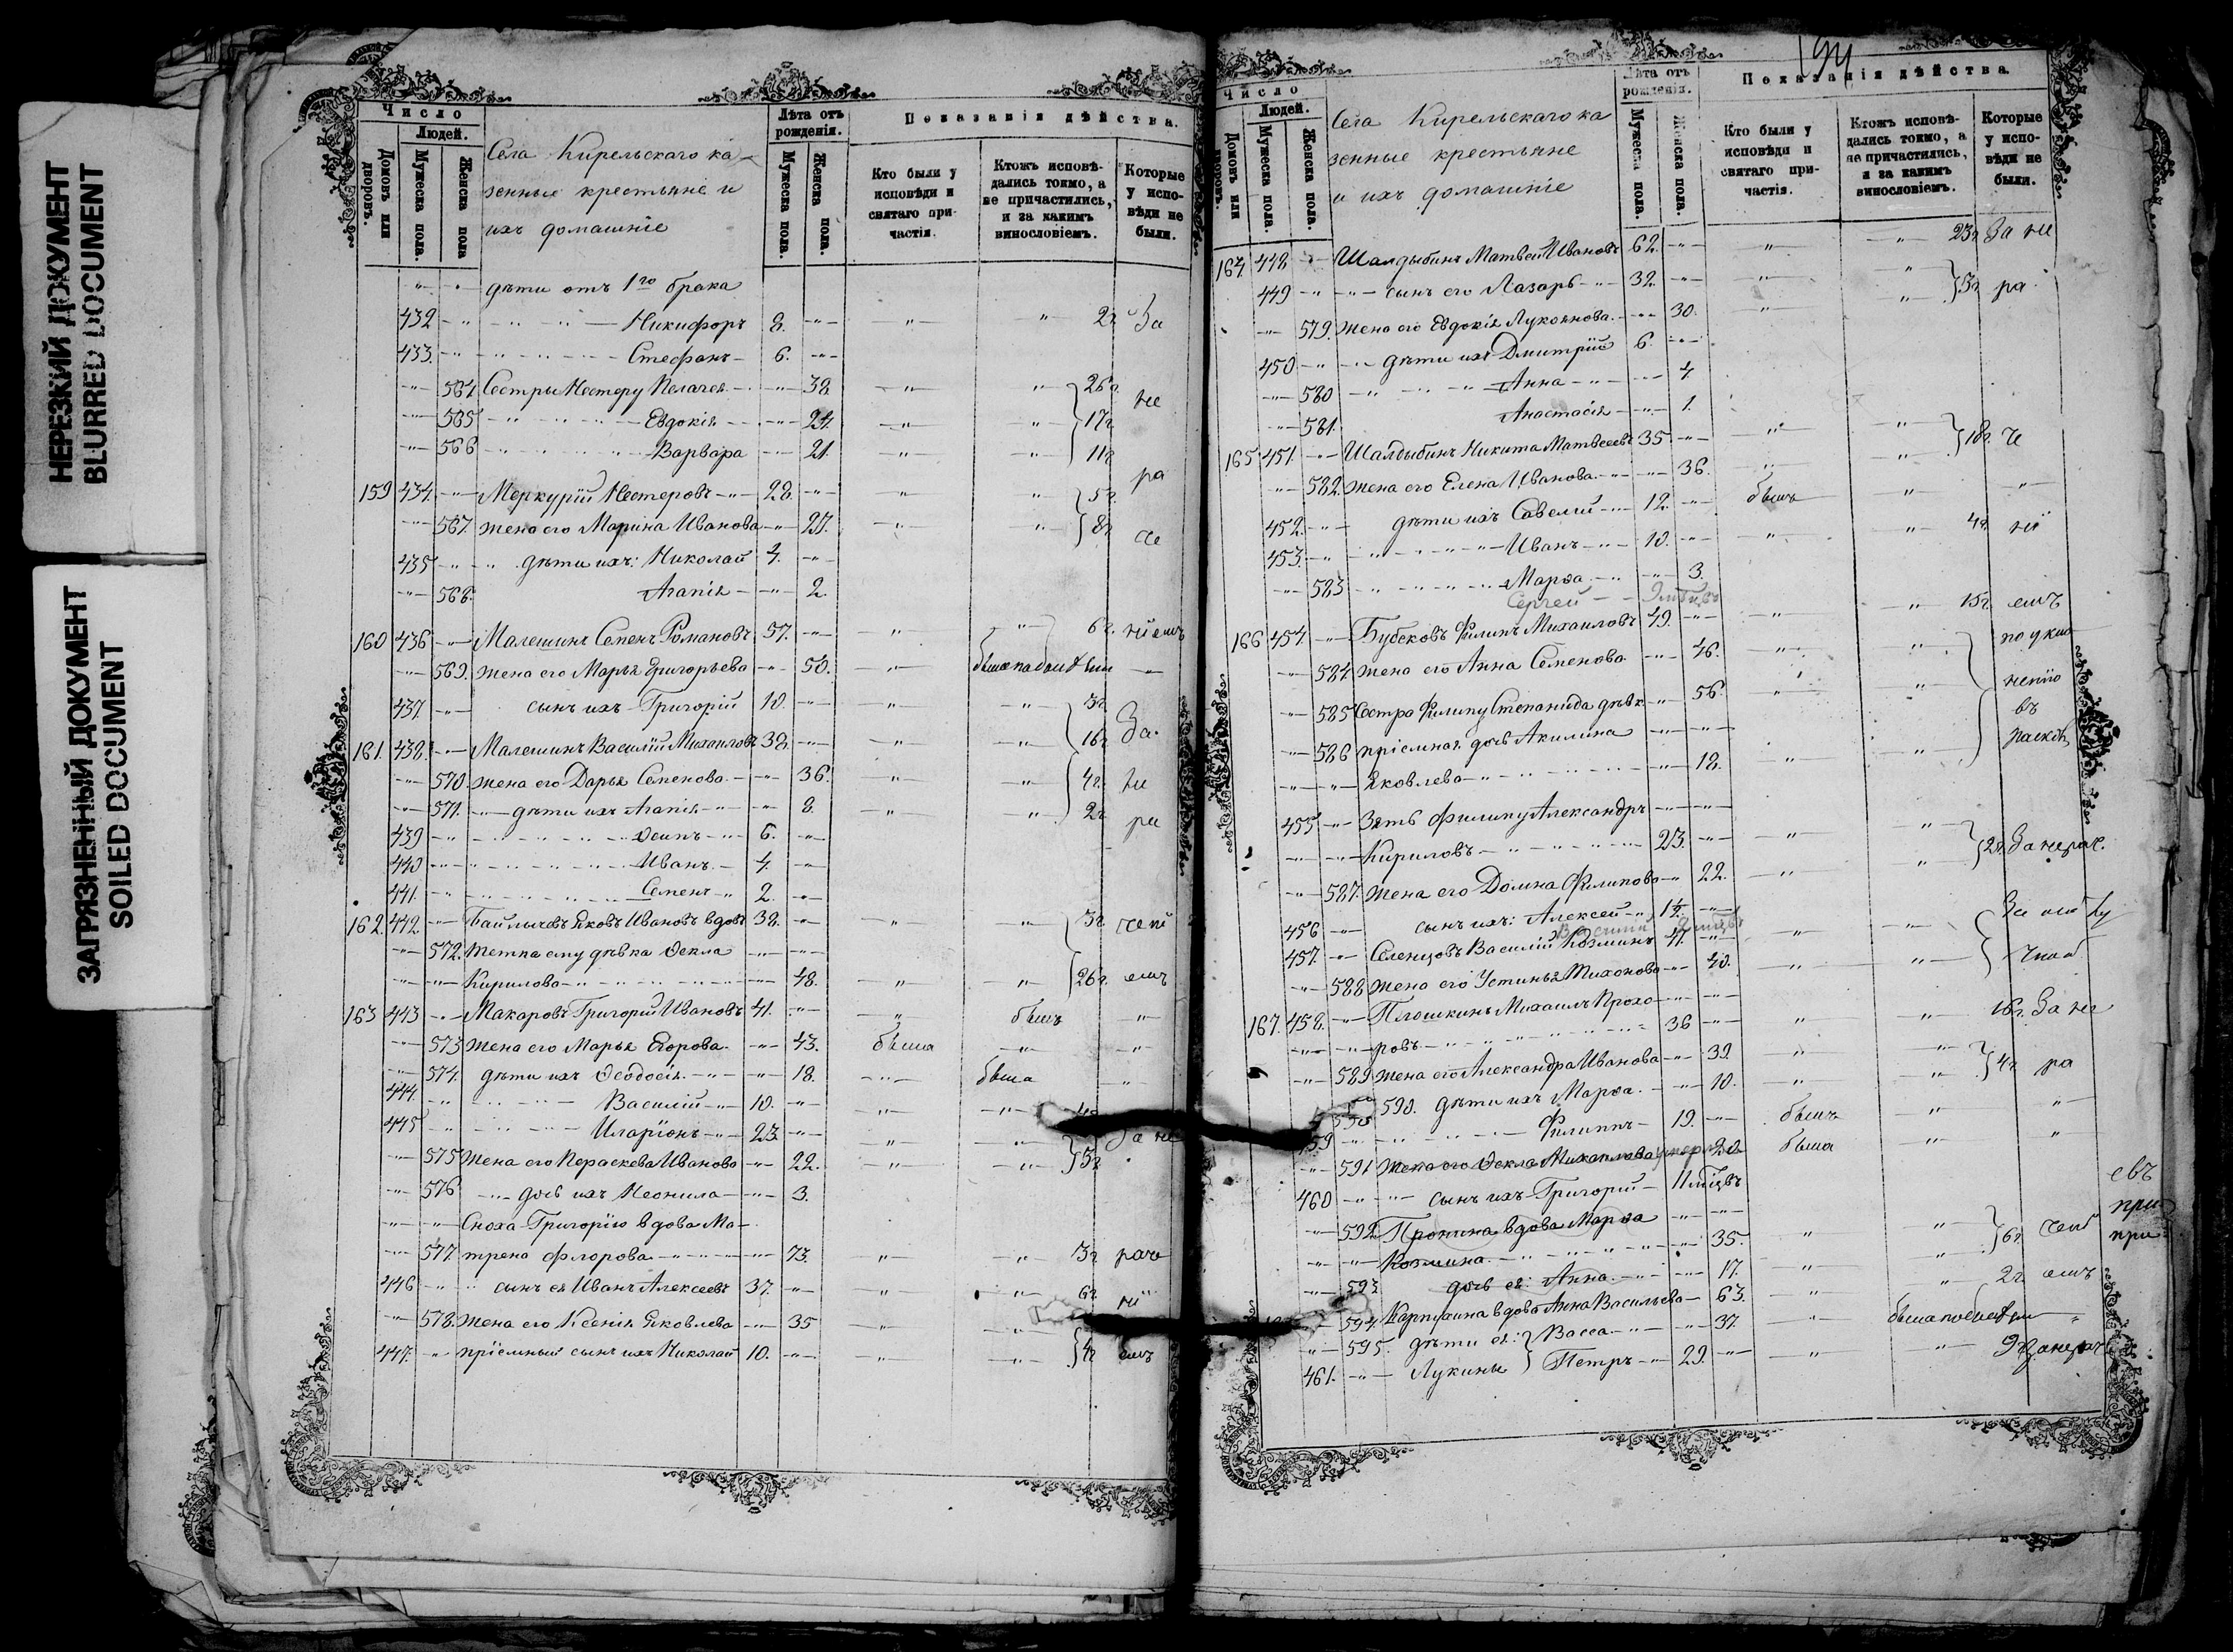 НЕРЕЗКИЙ ДОКУМЕНТ
BLURRED DOCUMENT
ЗАГРЯЗНЕННЫЙ ДОКУМЕНТ
SOILED DOCUMENT
Число
Людей.
Домовъ или дворовъ.
Мужеска пола.
Женска пола
Села Кирельскаго ка-
зенные крестьяне и
ихъ домашніе
Лѣта отъ рожденія.
Мужеска пола.
Женска пола.
Показанія дѣйства.
Кто были у исповѣди и святаго причастія.
Ктожъ исповѣдались токмо, а не причастились, и за какимъ винословіемъ.
Которые у исповѣди не были.
дѣти отъ 1го брака
432 Никифоръ 8. 2г. За
433. Стефанъ 6.
564 Сестры Нестеру Пелагея 38. 26г. не
565 Евдокія 24. 17г.
566 Варвара 21. 11г. ра
159 434. Меркурій Нестеровъ 28. 5г.
567. жена его Марина Иванова 27. 8г. че
435 дѣти ихъ: Николай 4.
568. Агапія 2.
160 436 Малешинъ Семенъ Романовъ 57. 6г. ніемъ
569. жена его Марья Григорьева 50.
437. сынъ ихъ Григорій 10. 3г.
161. 438. Малешинъ Василій Михаиловъ 38. 16г. За
570. жена его Дарья Семенова 36. 4г. не
571. дѣти ихъ Агапія 8. 2г. ра
439 Осипъ 6.
440 Иванъ 4.
441. Семенъ 2.
162. 442. Яковъ Ивановъ вдовъ 38. 3г.
572. тетка ему дѣвка Ѳекла
Кирилова 48. 26г. емъ
163 443 Макаровъ Григорій Ивановъ 41. бывъ
573 жена его Марья Егорова 43. была
574. дѣти ихъ Ѳеодосія 18. была
444. Василій 10.
445 Иларіонъ 23. За не
575 жена его Параскева Иванова 22. 5г.
576 дочь ихъ Неонила 3.
Сноха Григорію вдова Ма-
577 трена Флорова 73. 3г. раче
446 сынъ ея Иванъ Алексеевъ 37. 6г. ні
578. жена его Ксенія Яковлева 35
447. пріемный сынъ ихъ Николай 10. 4г. емъ
194
Число
Людей.
Домовъ или дворовъ.
Мужеска пола.
Женска пола.
Села Кирельскаго ка
зенные крестьяне
и ихъ домашніе
Лѣта отъ рожденія.
Мужеска пола.
Женска пола.
Показанія дѣйства.
Кто были у исповѣди и святаго причастія.
Ктожъ исповѣдались токмо, а не причастились, и за какимъ винословіемъ.
Которые у исповѣди не были.
164. 448 Шалдыбинъ Матвей Ивановъ 62. 23г. За не
449 сынъ его Лазарь 32. 3г. ра
579. жена его Евдокія Лукоянова 30.
450 дѣти ихъ Дмитрій 6.
580 Анна 4.
581. Анастасія 1.
165 451. Шалдыбинъ Никита Матвеевъ 35. 18г. че
582. жена его Елена Иванова 36.
452. дѣти ихъ Савелій 12. бывъ
453. Иванъ 10. 4г. ні
583 Марѳа 3.
Сергей
166 454. Бубековъ Филипъ Михаиловъ 49. 15г. емъ
584 жена его Анна Семенова 46.
585 Сестра Филипу Степанида дѣвка 56. въ
586 пріемная дочь Акилина
Яковлева 18.
455 Зять Филипу Александръ
Кириловъ 23.
587. жена его Домна Филипова 22. 2г. За нерач.
456 сынъ ихъ: Алексей 1½.
457. Селенцовъ Василій Козминъ 47.
588 жена его Устинья Тихонова 40.
167. 458. Плошкинъ Михаилъ Прохо- 16г. За не
ровъ 36
589 жена его Александра Иванова 39. 4г. ра
590. дѣти ихъ Марѳа 10.
459 Филиппъ 19. бывъ
591 жена его Ѳекла Михаилова умерла 20 была
460 сынъ ихъ Григорій 11 мѣцвъ
592 Пронина вдова Марѳа
Козмина 35. 6г.
593 дочь ея: Анна 17. 2г. емъ
594 Карпухина вдова Анна Васильева 63.
595. дѣти ея: Васса 37.
461. Лукины Петръ 29.